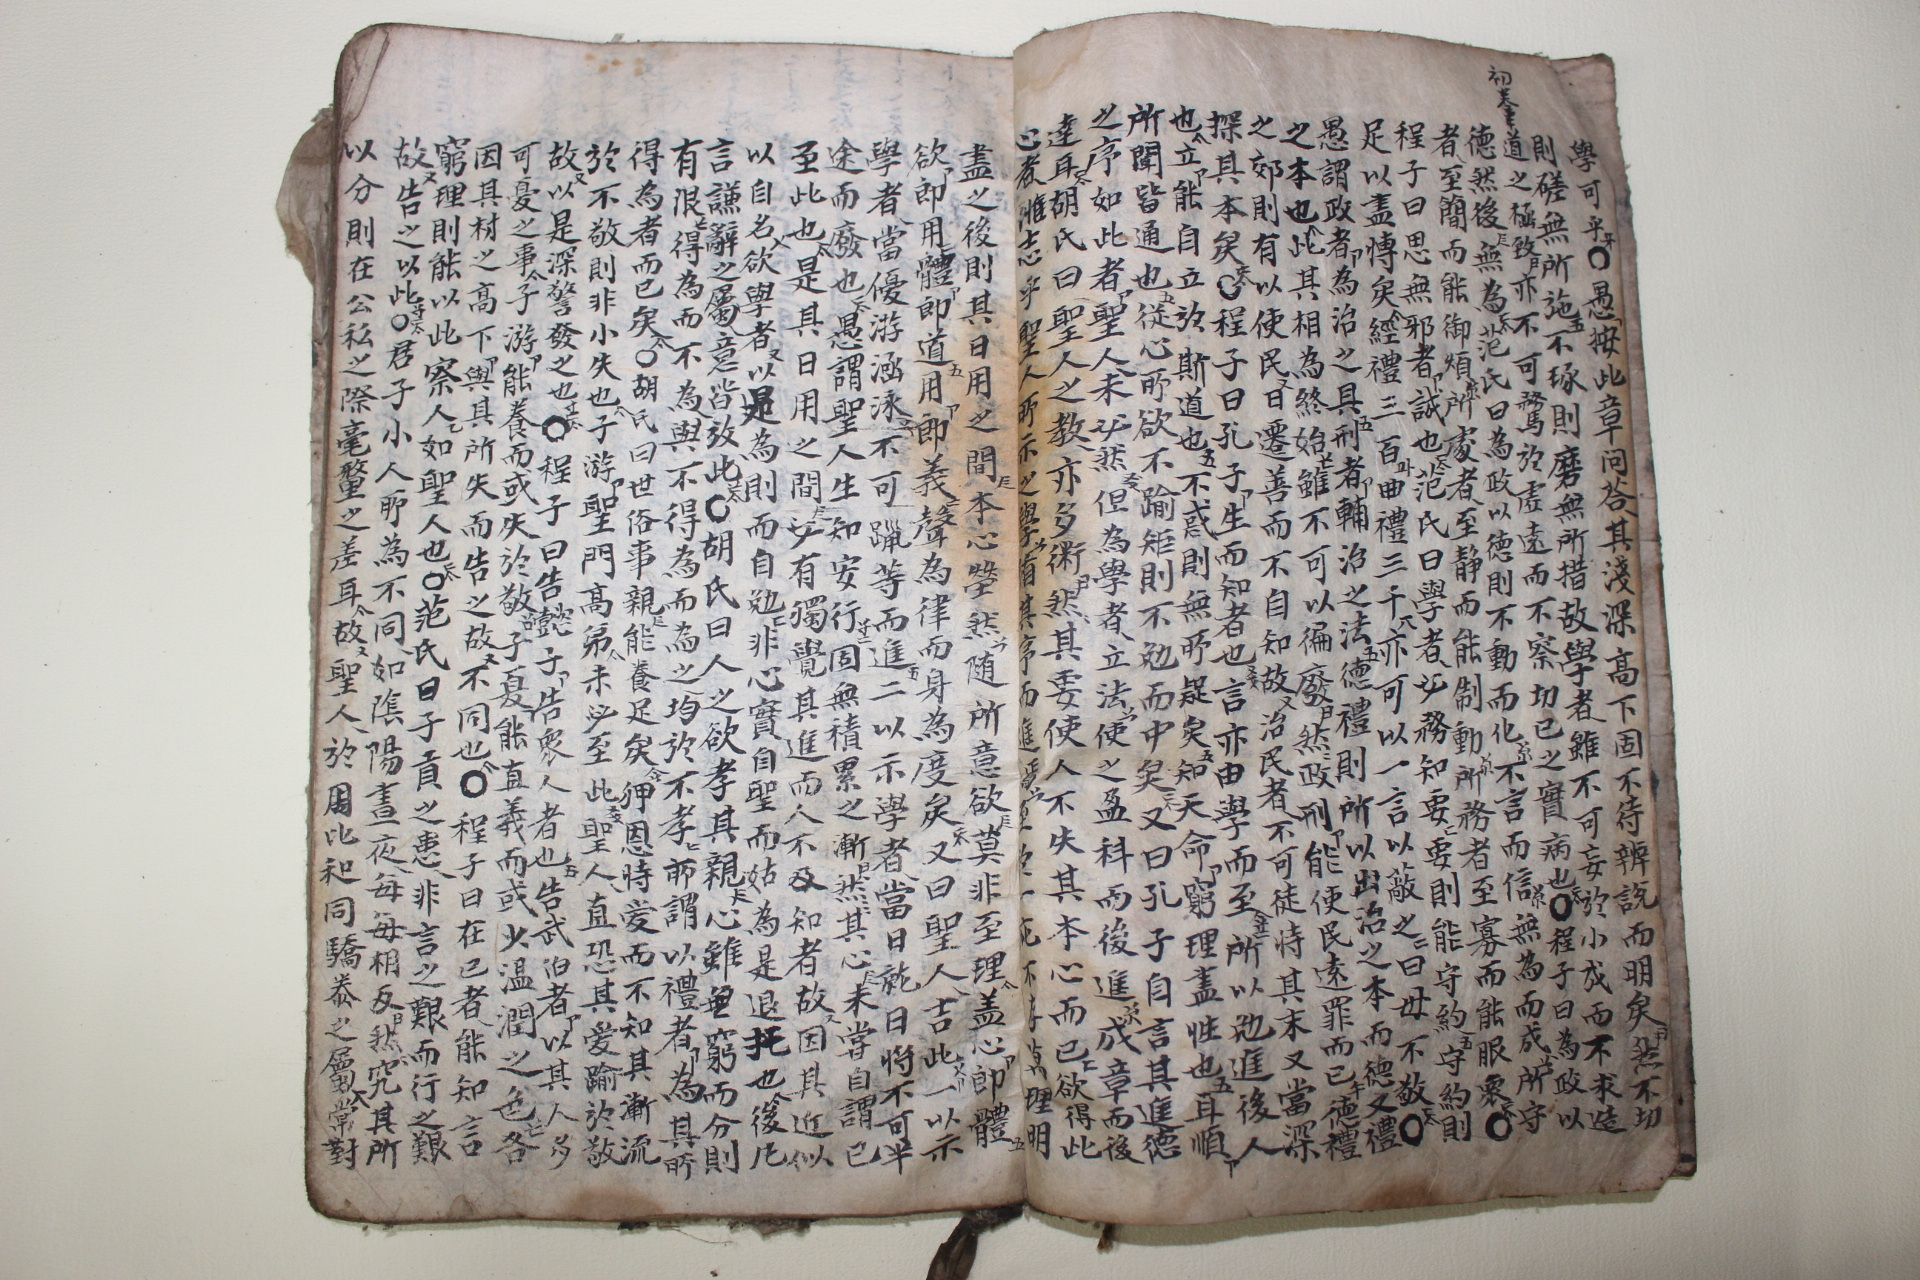 初卷
學可乎○愚按此章問答其淺深高下固不待辨說而明矣然不切
則磋無所施不琢則磨無所措故學者雖不可妄於小成而不求造
道之極致亦不可騖於虛遠而不察切已之實病也○程子曰為政以
德然後無為范氏曰為政以德則不動而化不言而信無為而成所守
者至簡而能御煩所處者至靜而能制動所務者至寡而能服衆○
程子曰思無邪者誠也范氏曰學者必務知要要則能守約守約則
足以盡博矣經禮三百曲禮三千亦可以一言以蔽之曰毋不敬○
愚謂政者為治之具刑者輔治之法德禮則所以出治之本而德又禮
之本也此其相為終始雖不可以徧廢然政刑能使民遠罪而已德禮
之郊則有以使民日遷善而不自知故治民者不可徒恃其末又當深
探其本矣○程子曰孔子生而知者也言亦由學而至所以勉進後人
也立能自立於斯道也不惑則無所疑矣知天命窮理盡性也耳順
所聞皆通也從心所欲不踰矩則不勉而中矣又曰孔子自言其進德
之序如此者聖人未必然但為學者立法使之盈科而後進成章而後
達耳胡氏曰聖人之教亦多術然其要使人不失其本心而已欲得此
心者惟志乎聖人所示之學循其序而進焉至於一疵不存萬理明
盡之後則其日用之間本心瑩然隨所意欲莫非至理盖心即體
欲即用體即道用即義聲為律而身為度矣又曰聖人言此一以示
學者當優游涵泳不可躐等而進二以示學者當日就日將不可半
途而廢也愚謂聖人生知安行固無積累之漸然其心未嘗自謂已
至此也是其日用之間必有獨覺其進而人不及知者故因其近似
以自名欲學者以是為則而自勉非心實自聖而姑為是退托也後凡
言謙辭之屬意皆放此○胡氏曰人之欲孝其親心雖無窮而分則
有限得為而不為與不得為而為之均於不孝所謂以禮者為其所
得為者而已矣○胡氏曰世俗事親能養足矣狎恩恃愛而不知其漸流
於不敬則非小失也子游聖門高弟未必至此聖人直恐其愛踰於敬
故以是深警發之也○程子曰告懿子告衆人者也告武伯者以其人多
可憂之事子游能養而或失於敬子夏能直義而或少温潤之色各
因其材之高下與其所失而告之故不同也○程子曰在已者能知言
窮理則能以此察人如聖人也○范氏曰子貢之患非言之艱而行之艱
故告之以此○君子小人所為不同如陰陽晝夜每每相反然究其所
以分則在公私之際毫釐之差耳故聖人於周比和同驕泰之屬常對